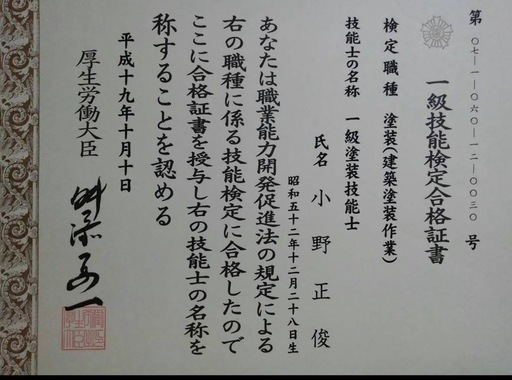 第 〇七-一-〇六〇-一二-〇〇三〇 号
一級技能検定合格証書
検定職種 塗装(建築塗装作業)
技能士の名称 一級塗装技能士
氏名 小野正俊
昭和五十二年十二月二十八日生
あなたは職業能力開発促進法の規定による
右の職種に係る技能検定に合格したので
ここに合格証書を授与し右の技能士の名称を
称することを認める
平成十九年十月十日
厚生労働大臣
舛添要一